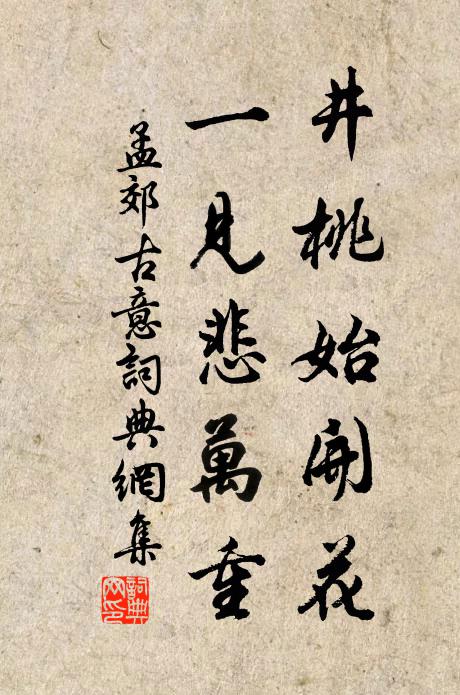 井桃始開花
一見悲萬重
孟郊古意詞典網集
詞典网印